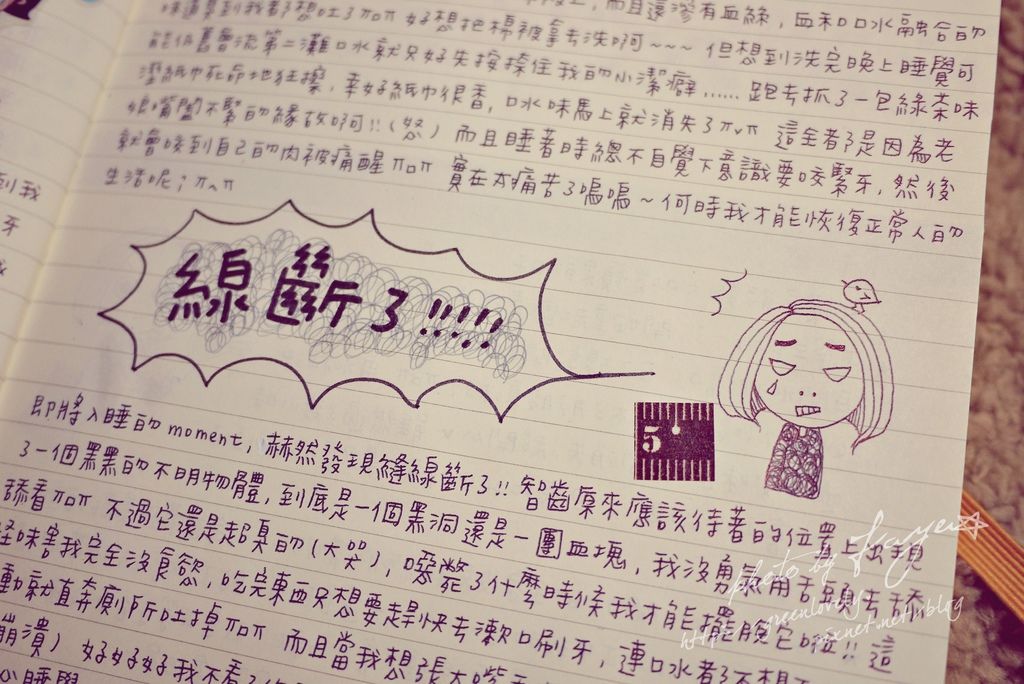 而且還滲有血絲，血和口水融合的
味道臭到我都想吐了πoπ 好想把棉被拿去洗啊～～～ 但想到洗完晚上睡覺可
能仍舊會流第二灘口水就只好先按捺住我的小潔癖...... 跑去抓了一包綠茶味
溼紙巾死命地狂擦，幸好紙巾很香，口水味馬上就消失了πvπ 這全都是因為老
娘嘴闔不緊的緣故啊!!(怒) 而且睡著時總不自覺下意識要咬緊牙，然後
就會咬到自己的肉被痛醒πoπ 實在太痛苦了嗚嗚～何時我才能恢復正常人的
生活呢；π^π
到我
牙
線斷了!!!!!
5
即將入睡的moment，赫然發現縫線斷了!! 智齒原來應該待著的位置上出現
了一個黑黑的不明物體，到底是一個黑洞還是一團血塊，我沒勇氣用舌頭去舔
舔看πoπ 不過它還是超臭的(大哭)，嘴斃了什麼時候我才能擺脫它啦!! 這
怪味害我完全沒食慾，吃完東西只想要趕快去漱口刷牙，連口水都不想
動就直奔廁所吐掉πoπ 而且當我想張大嘴
崩潰) 好好好我不看了
睡覺
photo by faye☆
greenlovely
pixnet.net/blog